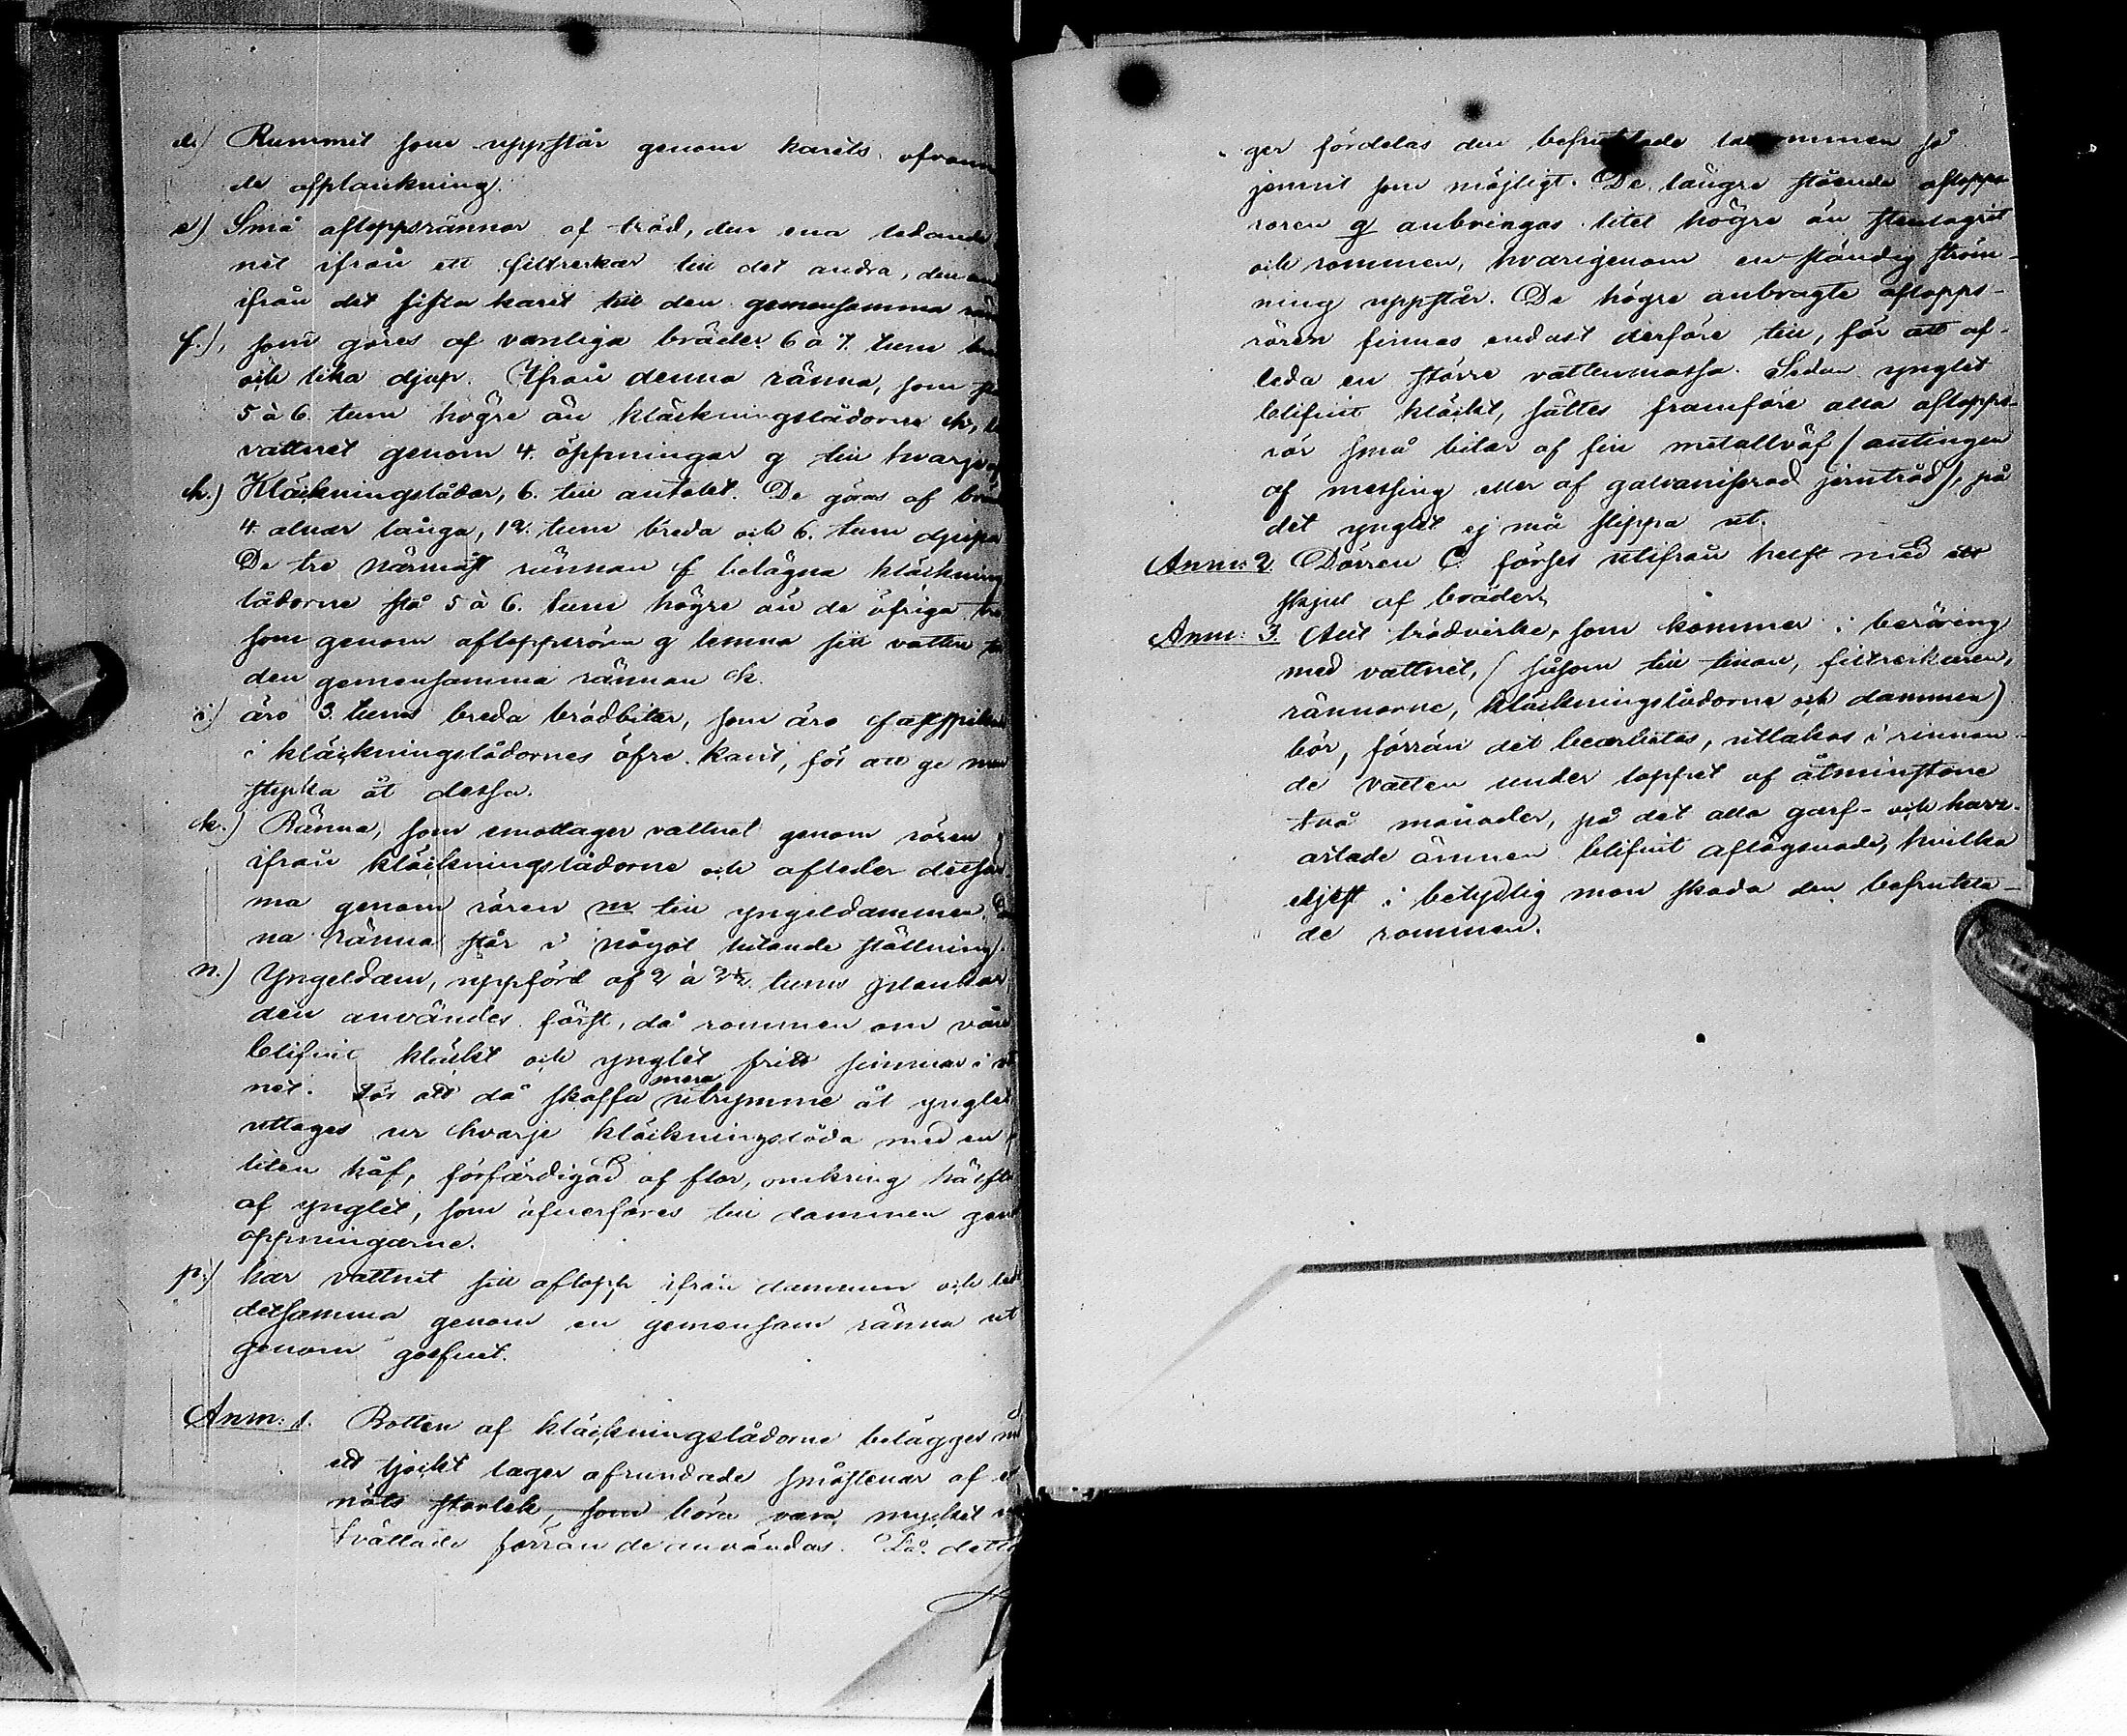 d.) Rummet som uppstår genom karets ofvann
de afplankning.
e) Små afloppsrännor af träd, den ena ledande
net ifrån ett filtrerkar till det andra, den an
ifrån det sista karet till den gemensamma rän
f.), som göres af vanliga bräder 6 à 7 tum
och lika djup. Ifrån denna ränna, som
5 à 6. tum högre än kläckningslådorne h,
vattnet genom 4. öppningar g till hvarje
h.) Kläckningslådor, 6. till antalet. De göras af
4. alnar långa, 12. tum breda och 6. tum djupa
De tre närmast rännan f belägna kläcknings
lådorne stå 5 à 6. tum högre än de öfriga tre
som genom afloppsrören g lemna sitt vatten
den gemensamma rännan k.
i.) äro 3. tums breda trädbitar, som äro
i kläckningslådornes öfre kant, för att ge
styrka åt dessa.
k.) Ränna, som emottager vattnet genom rören
ifrån kläckningslådorne och afleder detsam
ma genom rören m till yngeldammen. Den
na ränna står i något lutande ställning.
n.) Yngeldam, uppförd af 2 à 2½ tums plankor
den användes först, då rommen om vår
blifvit kläckt och ynglet fritt simmar i
net. För att då skaffa mera utrymme åt ynglet
uttages ur hvarje kläckningslåda med en
liten håf, förfärdigad af flor, omkring hälfte
af ynglet, som öfverföres till dammen gen
öppningarne.
p.) har vattnet sitt aflopp ifrån dammen och
detsamma genom en gemensam ränna ut
genom golfvet.
Anm: 1. Botten af kläckningslådorne belägges
ett tjockt lager afrundade småstenar af
nöts storlek, som böra vara mycket
tvättade förrän de användas. På detta
ger fördelas den befruktade laxrommen så
jemnt som möjligt. De lägre stående aflopps-
rören g anbringas litet högre än stenlagret
och rommen, hvarigenom en ständig ström-
ning uppstår. De högre anbragte aflopps-
rören finnas endast derföre till, för att af-
leda en större vattenmassa. Sedan ynglet
blifvit kläckt, sättes framföre alla aflopps-
rör små bitar af fin metallväf (antingen
af messing eller af galvaniserad jerntråd), på
det ynglet ej må slippa ut.
Anm: 2 Dörren C förses utifrån helst med ett
skjul af bräder.
Anm: 3. Allt trädvirke, som kommer i beröring
med vattnet, (såsom till tinan, filtrerkaren,
rännorne, kläckningslådorne och dammen)
bör, förrän det bearbetas, utlakas i rinnan-
de vatten under loppet af åtminstone
två månader, på det alla garf- och harz-
artade ämnen blifvit aflägsnade, hvilka
eljest i betydlig mon skada den befrukta-
de rommen.